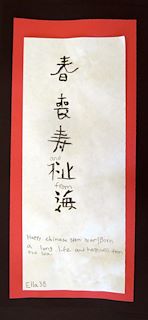 春
寿
and
祉
from
海
Happy Chinese New Year/Born
a long life and happiness from
the sea.
Ella 3S